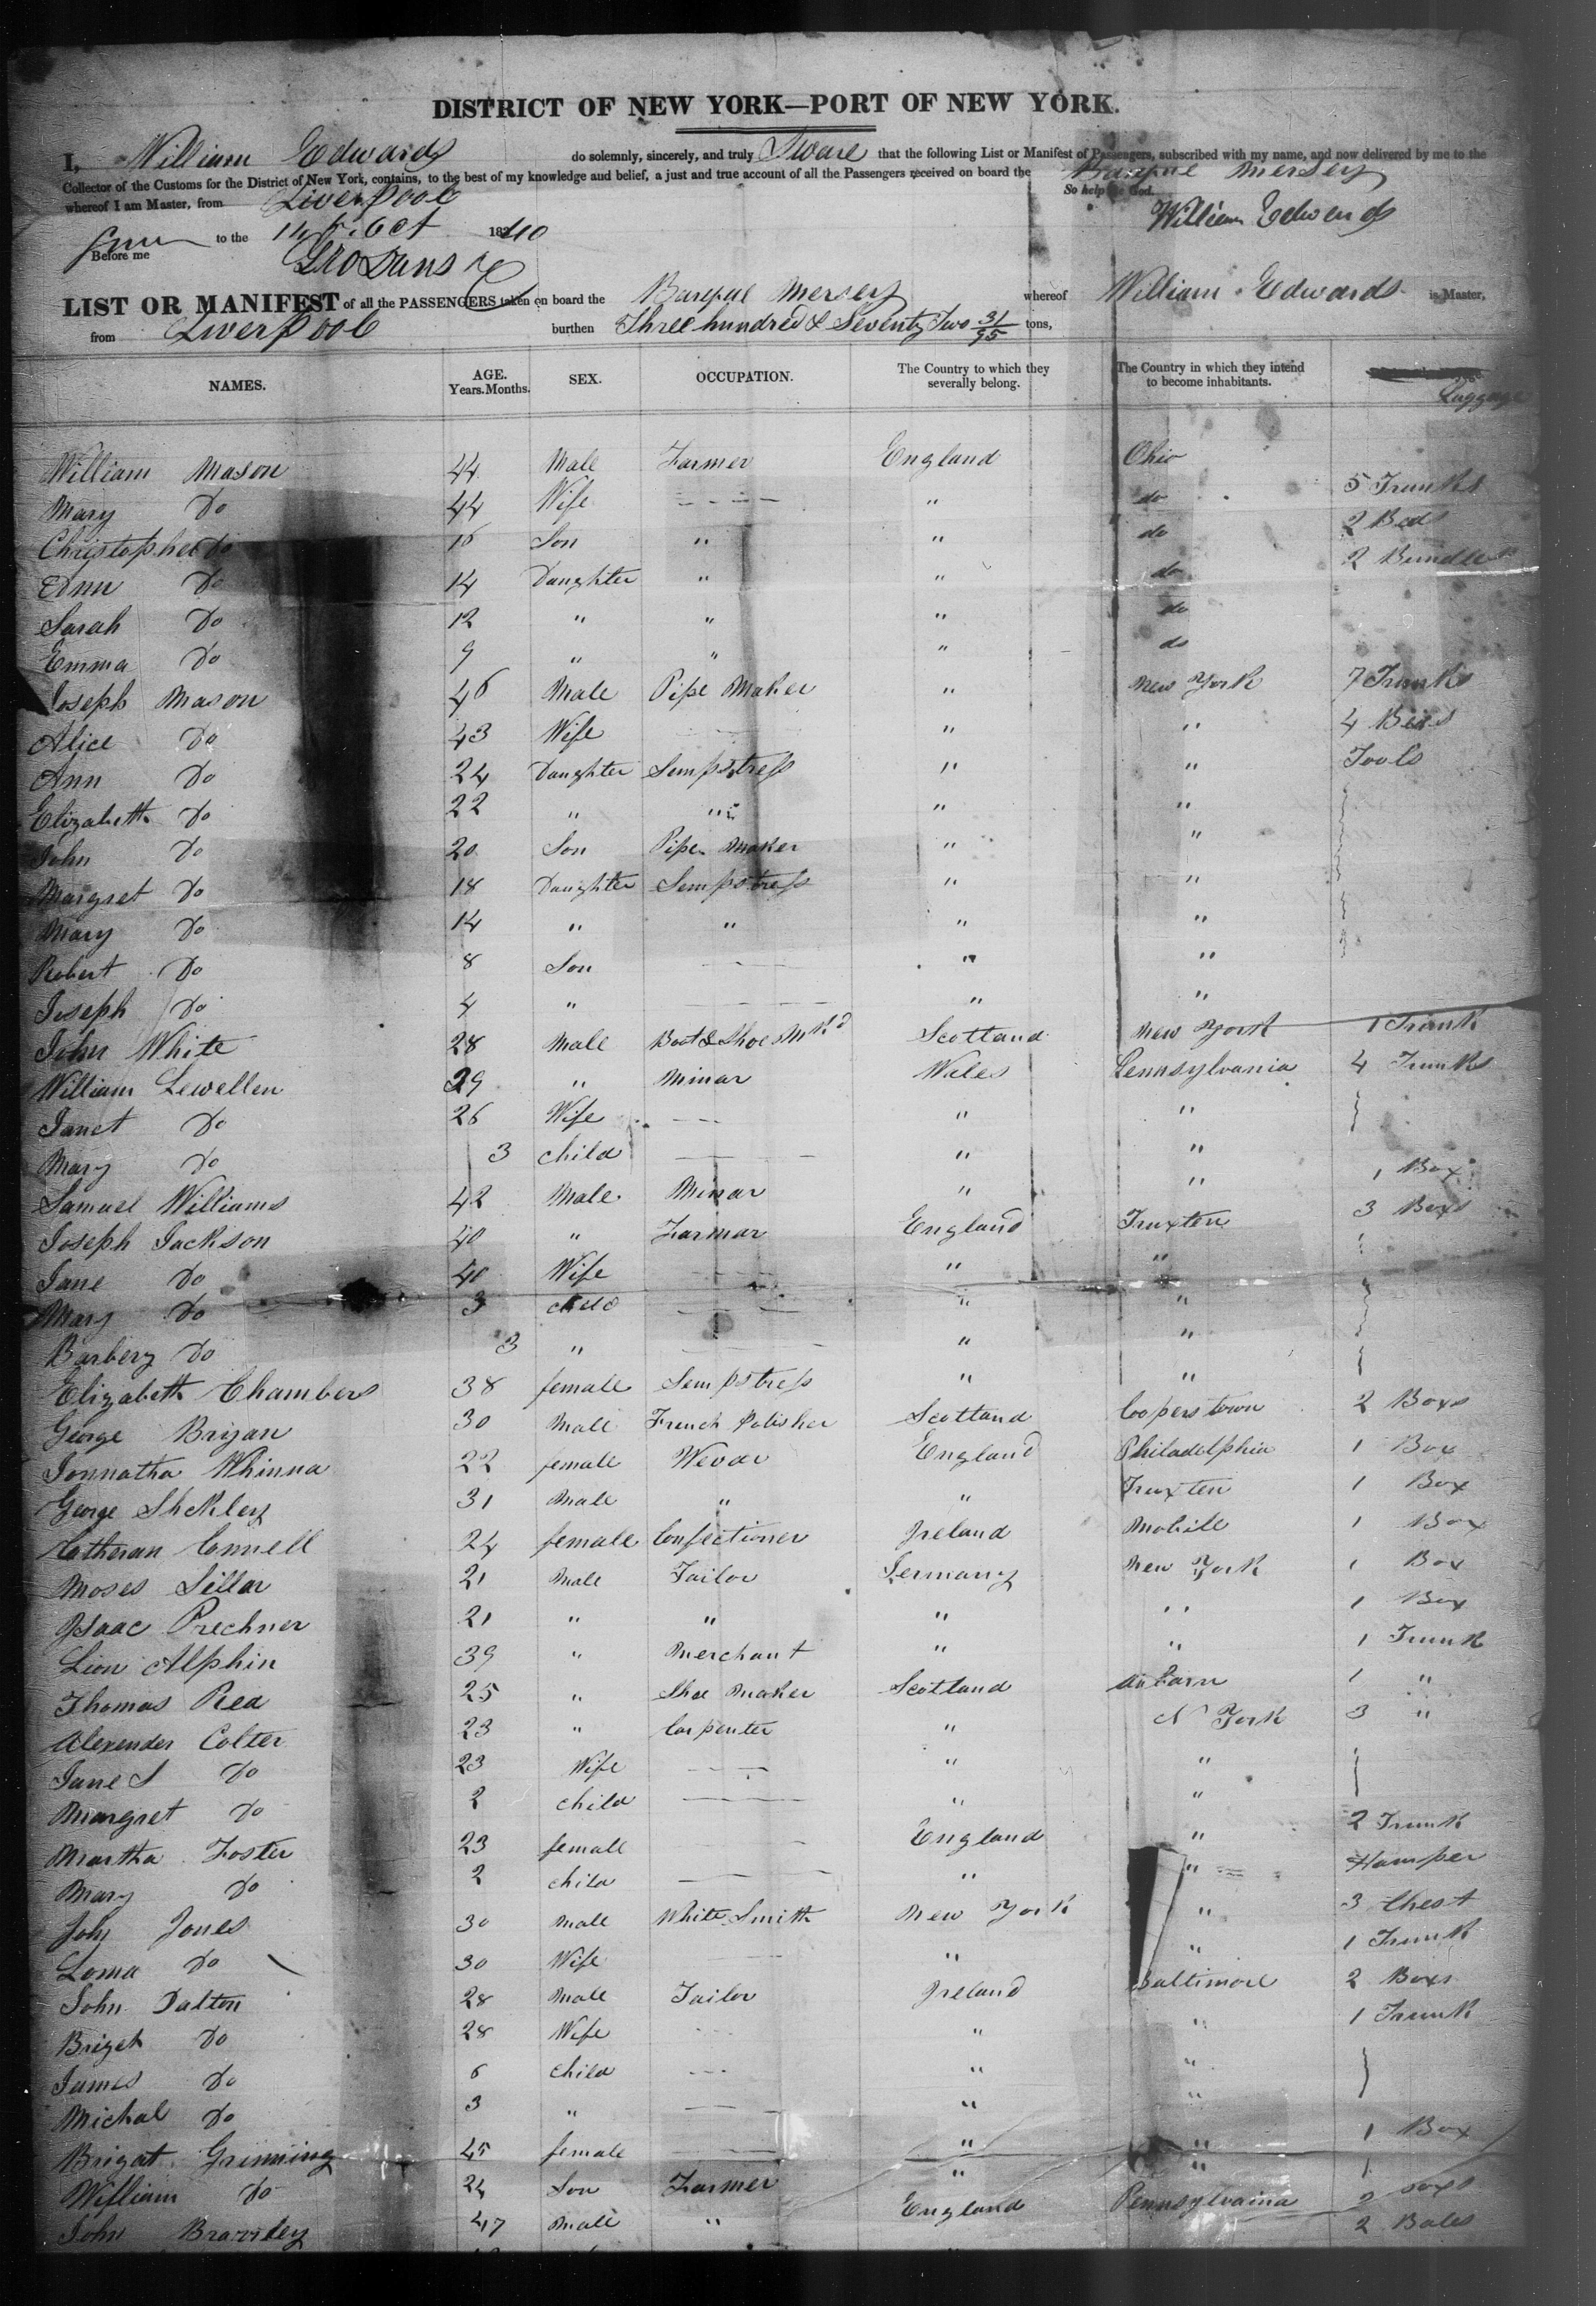 DISTRICT OF NEW YORK—PORT OF NEW YORK.
I, William Edwards do solemnly, sincerely, and truly Sware that the following List or Manifest of Passengers, subscribed with my name, and now delivered by me to the
Collector of the Customs for the District of New York, contains, to the best of my knowledge and belief, a just and true account of all the Passengers received on board the Barque Mersey
whereof I am Master, from Liverpool So help me God.
to the 14 Oct 1840 William Edwards
Before me
LIST OR MANIFEST of all the PASSENGERS taken on board the Barque Mersey whereof William Edwards is Master,
from Liverpool burthen Three hundred & Seventy Two 31/95 tons,
NAMES. AGE. Years. Months. SEX. OCCUPATION. The Country to which they severally belong. The Country in which they intend to become inhabitants. Luggage
William Mason 44 Male Farmer England Ohio
Mary Do 44 Wife — — — " do 5 Trunks
Christopher Do 16 Son " " do 2 Beds
Edna Do 14 Daughter " " do 2 Bundles
Sarah Do 12 " " " do
Emma Do 9 " " " do
Joseph Mason 46 Male Pipe Maker " New York 7 Trunks
Alice Do 43 Wife " " 4 Beds
Ann Do 24 Daughter Sempstress " " Tools
Elizabeth Do 22 " " " "
John Do 20 Son Pipe Maker " "
Margret Do 18 Daughter Sempstress " "
Mary Do 14 " " " "
Robert Do 8 Son — — " "
Joseph Do 4 " — — " "
John White 28 Male Boot & Shoe Mkr Scotland New York 1 Trunk
William Lewellen 29 " Minar Wales Pennsylvania 4 Trunks
Janet Do 26 Wife — — " "
Mary Do 3 child — — " "
Samuel Williams 42 Male Minar " " 1 Box
Joseph Jackson 40 " Farmar England Truxten 3 Boxs
Jane Do 40 Wife — — " "
Mary Do 3 child — — " "
Barbery Do 3 " — — " "
Elizabeth Chambers 38 female Sempstress " "
George Bryan 30 Male French Polisher Scotland Cooperstown 2 Boxs
Jonnatha Whinna 22 female Wevar England Philadelphia 1 Box
George Shekley 31 Male " " Truxten 1 Box
Catheran Connell 24 female Confectioner Ireland Mobile 1 Box
Moses Sillar 21 Male Tailor Germany New York 1 Box
Isaac Prechner 21 " " " " 1 Box
Lion Alphin 39 " Merchant " " 1 Trunk
Thomas Rea 25 " Shoe Maker Scotland 1 "
Alexender Colter 23 " Carpenter " N York 3 "
Jane S Do 23 Wife — — " "
Margret Do 2 child — — " "
Martha Foster 23 female — England " 2 Trunk
Mary Do 2 child — — " " Hamper
John Jones 30 Male White Smith New York " 3 Chest
Loma Do 30 Wife — " " 1 Trunk
John Dalton 28 Male Tailor Ireland Baltimore 2 Boxs
Briget Do 28 Wife — " " 1 Trunk
James Do 6 child — " "
Michal Do 3 " — — " "
Brigat Grinning 45 female — — " " 1 Box
William Do 24 Son Farmer " " 1
John 47 Male " England Pennsylvaina 2 Boxs
2 Bales